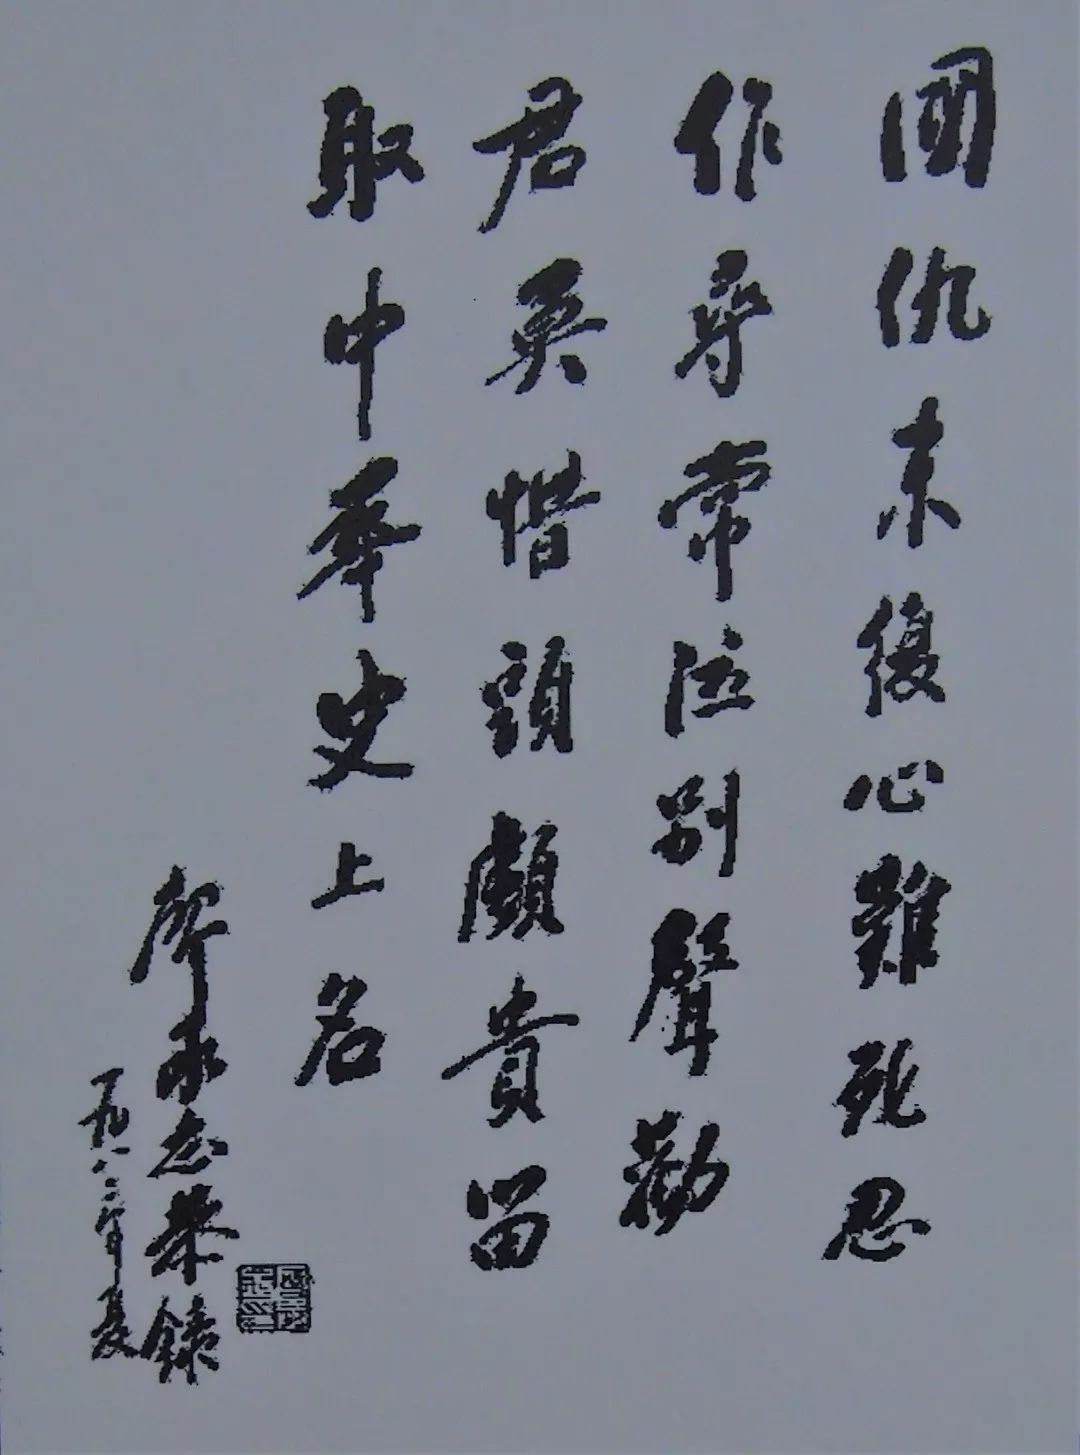 國仇未復心難死忍
作尋常泣別聲勸
君莫惜頭顱貴留
取中華史上名
廖承志恭錄
一九八二年夏